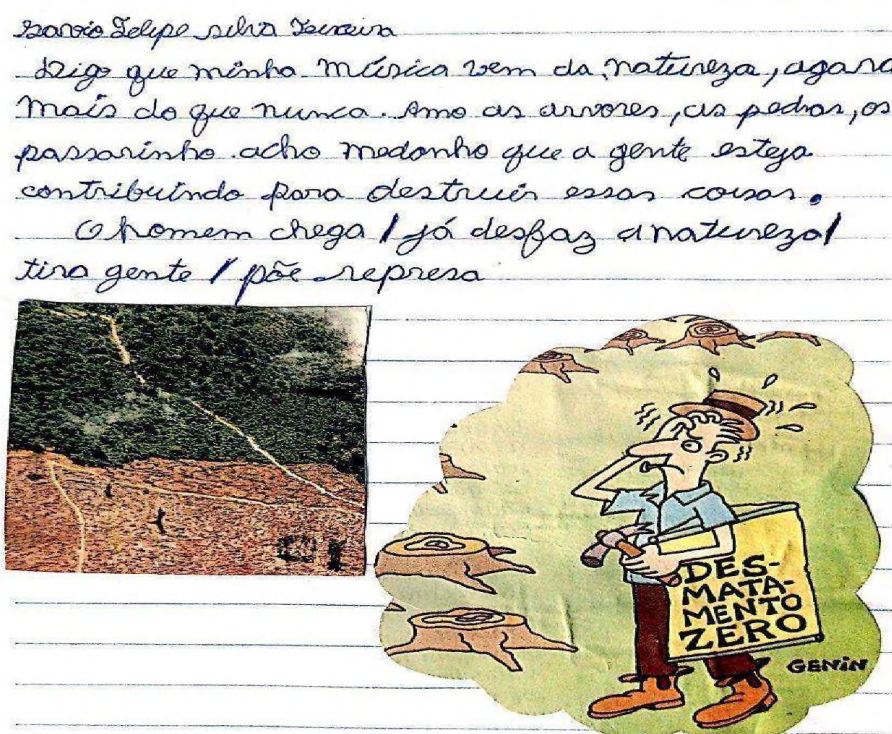 Felipe silva
Digo que minha música vem da natureza, agora
mais do que nunca. Amo as arvores, as pedras, os
passarinho acho medonho que a gente esteja
contribuindo para destruir essas coisas.
O homem chega / já desfaz a natureza /
tira gente / põe represa
DES-
MATA-
MENTO
ZERO
GENIN